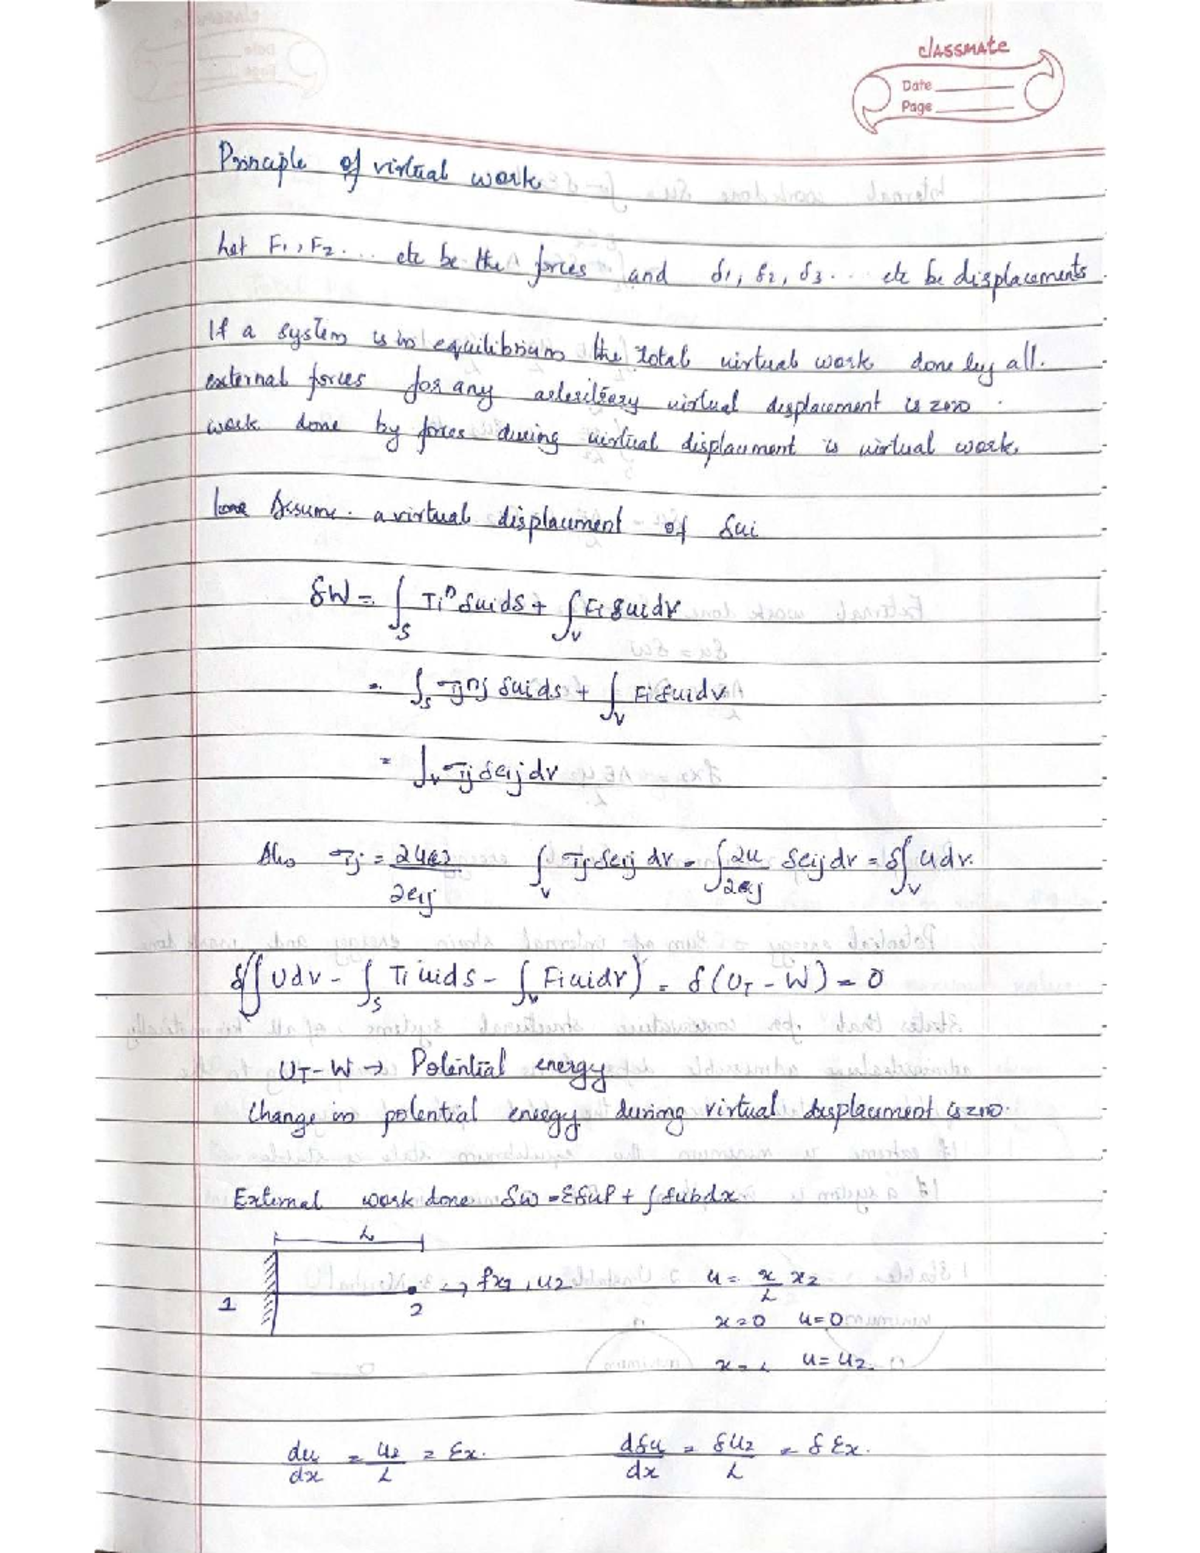 classmate
Date
Page
Principle of virtual work
Let F1, F2 ... etc be the forces and δ1, δ2, δ3 ... etc be displacements
If a system is in equilibrium the total virtual work done by all
external forces for any virtual displacement is zero.
work done by forces during virtual displacement is virtual work.
Assume a virtual displacement of δui
δW = ∫S Tiⁿ δui ds + ∫V Fi δui dv
= ∫S σij nj δui ds + ∫V Fi δui dv
= ∫V σij δeij dv
Also σij = ∂U(e) / ∂eij ∫V σij δeij dv = ∫ ∂u/∂eij δeij dv = δ∫V U dv.
δ(∫ U dv - ∫S Ti ui ds - ∫V Fi ui dv) = δ(UT - W) = 0
UT - W → Potential energy
Change in potential energy during virtual displacement is zero.
External work done δw = Σδu P + ∫ δu b dx
L
1 2 → fx2, u2 u = x/L x2
x = 0 u = 0
x = L u = u2
du/dx = u2/L = εx. dδu/dx = δu2/L = δεx.